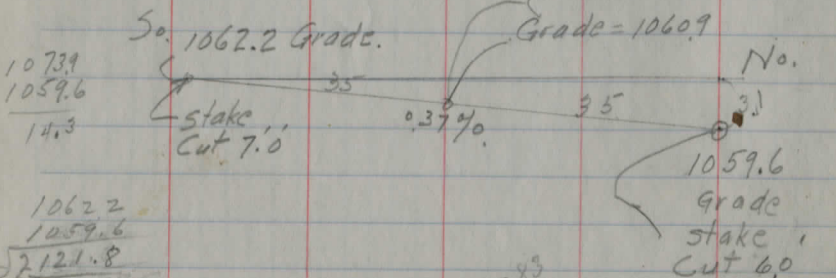 So. 1062.2 Grade.
Grade = 1060.9
No.
1073.9
1059.6
14.3
35
35
3.1
stake
Cut 7.0'
0.37%.
1059.6
Grade
stake
Cut 6.0'
1062.2
1059.6
2 2121.8